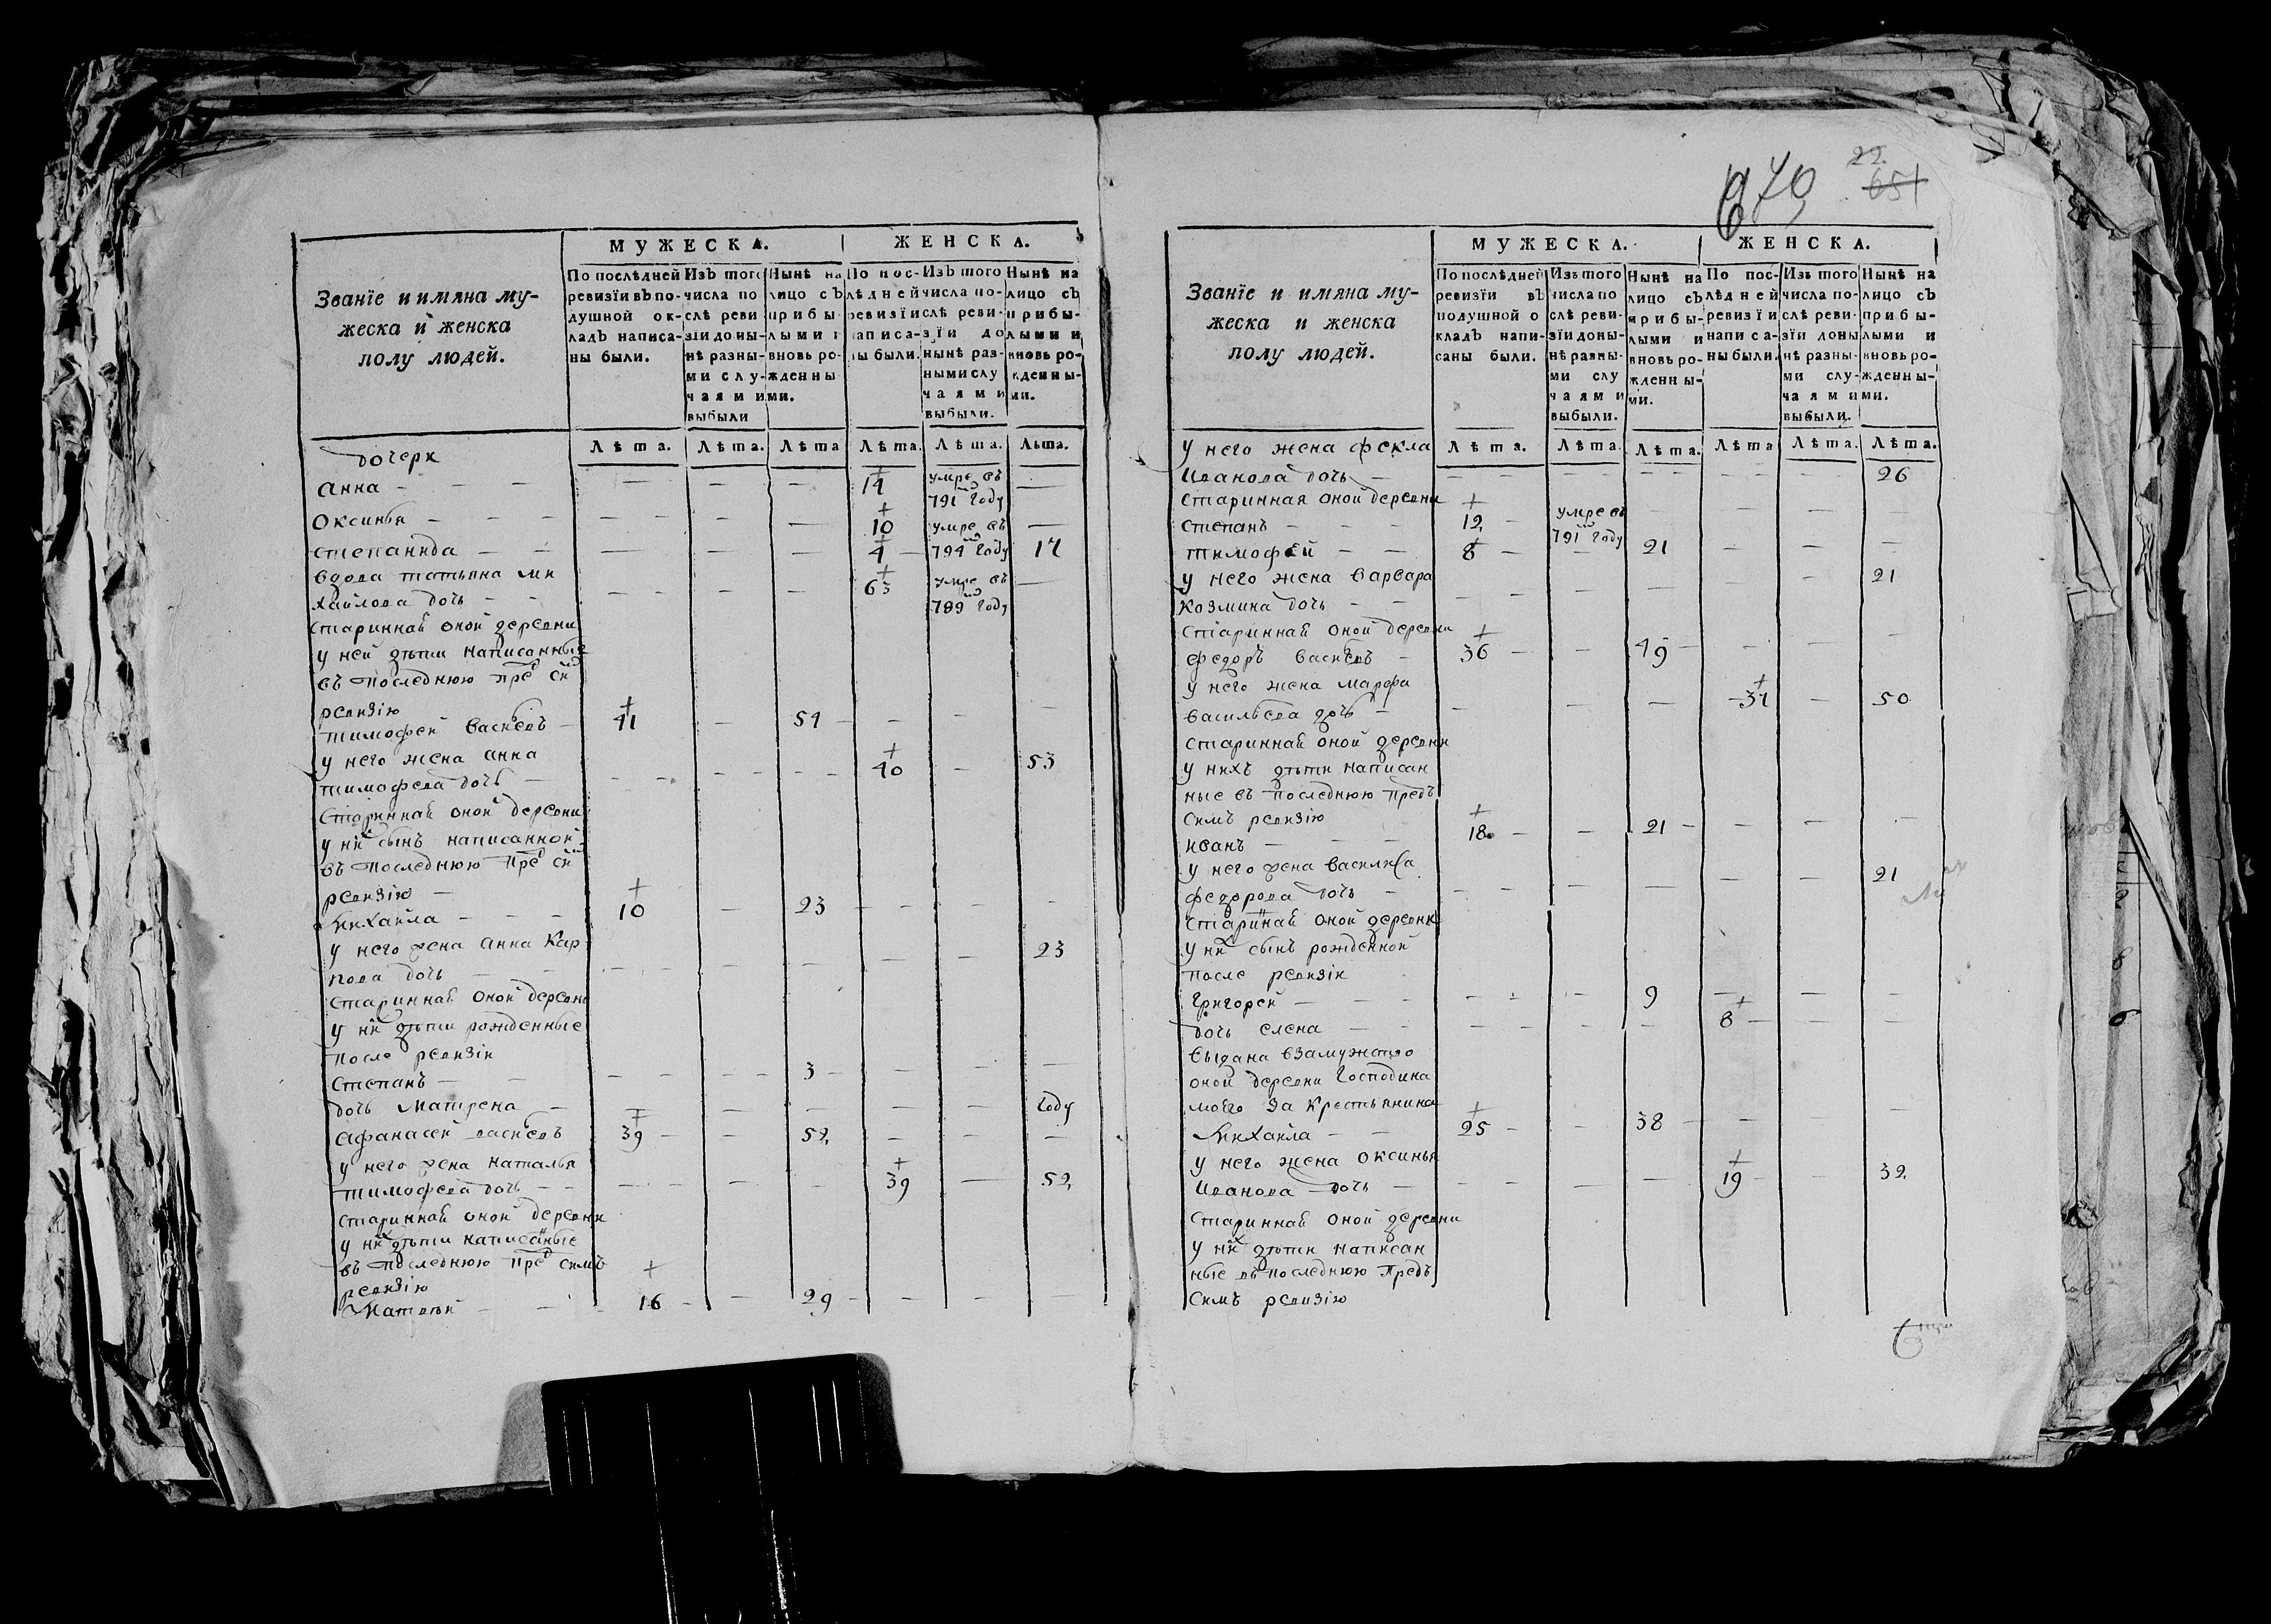 679
22.
651
МУЖЕСКА. ЖЕНСКА.
Званїе и имяна му-
жеска и женска
полу людей.
По послѣдней
ревизїи въ по-
душной ок-
ладъ написа-
ны были.
Изъ того
числа по
слѣ реви
зїи доны-
нѣ разны-
ми слу-
чаями
выбыли
Нынѣ на
лицо съ
прибы-
лыми и
вновь ро-
жденны
ми.
По пос-
лѣдней
ревизїи
написа-
ны были.
Изъ того
числа по-
слѣ реви-
зїи до
нынѣ раз-
ными слу
чаями
выбыли.
Нынѣ на
лицо съ
прибы-
лыми и
вновь ро-
жденны-
ми.
Лѣта. Лѣта. Лѣта Лѣта. Лѣта. Лѣта.
дочери
анна — — — 14 умре въ
791 году
оксинья — — — 10 умре въ
степанида — — 4 794 году 17
вдова татьяна ми
хайлова дочь — — 63 умре въ
789 году
стариннай оной деревни
у ней дѣти написанные
въ последнюю пред сей
ревизїю
тимофей васильевъ — 41 — 54
у него жена анна
тимофеева дочь — 40 — 53
стариннай оной деревни
у них сынъ написанной
въ последнюю пред сей
ревизїю —
михайла — — — 10 — 23
у него жена анна кар
пова дочь — — 23
стариннай оной деревни
у них дѣти рожденные
после ревизїи
степанъ — — 3
дочь матрена — году
афанасей васильевъ 39 — 52
у него жена наталья
тимофеева дочь — — 39 — 52
стариннай оной деревни
у них дѣти написанные
въ последнюю пред симъ
ревизїю
матвей — — 16 — 29
МУЖЕСКА. ЖЕНСКА.
Званїе и имяна му-
жеска и женска
полу людей.
По послѣдней
ревизїи въ
подушной о
кладъ напи-
саны были.
Изъ того
числа по
слѣ реви-
зїи доны-
нѣ разны-
ми слу
чаями
выбыли.
Нынѣ на
лицо съ
прибы-
лыми и
вновь ро-
жденны-
ми.
По пос-
лѣдней
ревизїи
написа-
ны были.
Изъ того
числа по-
слѣ реви-
зїи доны
нѣ разны-
ми слу-
чаями
выбыли.
Нынѣ на
лицо съ
прибы-
лыми и
вновь ро-
жденны-
ми.
Лѣта. Лѣта. Лѣта. Лѣта Лѣта. Лѣта.
у него жена фекла
иванова дочь — 26
старинная оной деревни
степанъ — — — 12 умре въ
791 году
тимофей — — 8 — 21
у него жена варвара 21
козмина дочь — —
стариннай оной деревни
федоръ васильевъ — 36 — 49
у него жена марфа
васильева дочь — 34 — 50
стариннай оной деревни
у нихъ дѣти написан
ные въ последнюю предъ
симъ ревизїю
иванъ — — — 18 — 21
у него жена василиса
федорова дочь — 21
стариннай оной деревни
у них сынъ рожденной
после ревизїи
григорей — — — 9
дочь елена — — 8
выдана взамужство
оной деревни господина
моего за крестьянина
михайла — — 25 — 38
у него жена оксинья
иванова дочь — 19 — 32
стариннай оной деревни
у них дѣти написан
ные въ последнюю предъ
симъ ревизїю